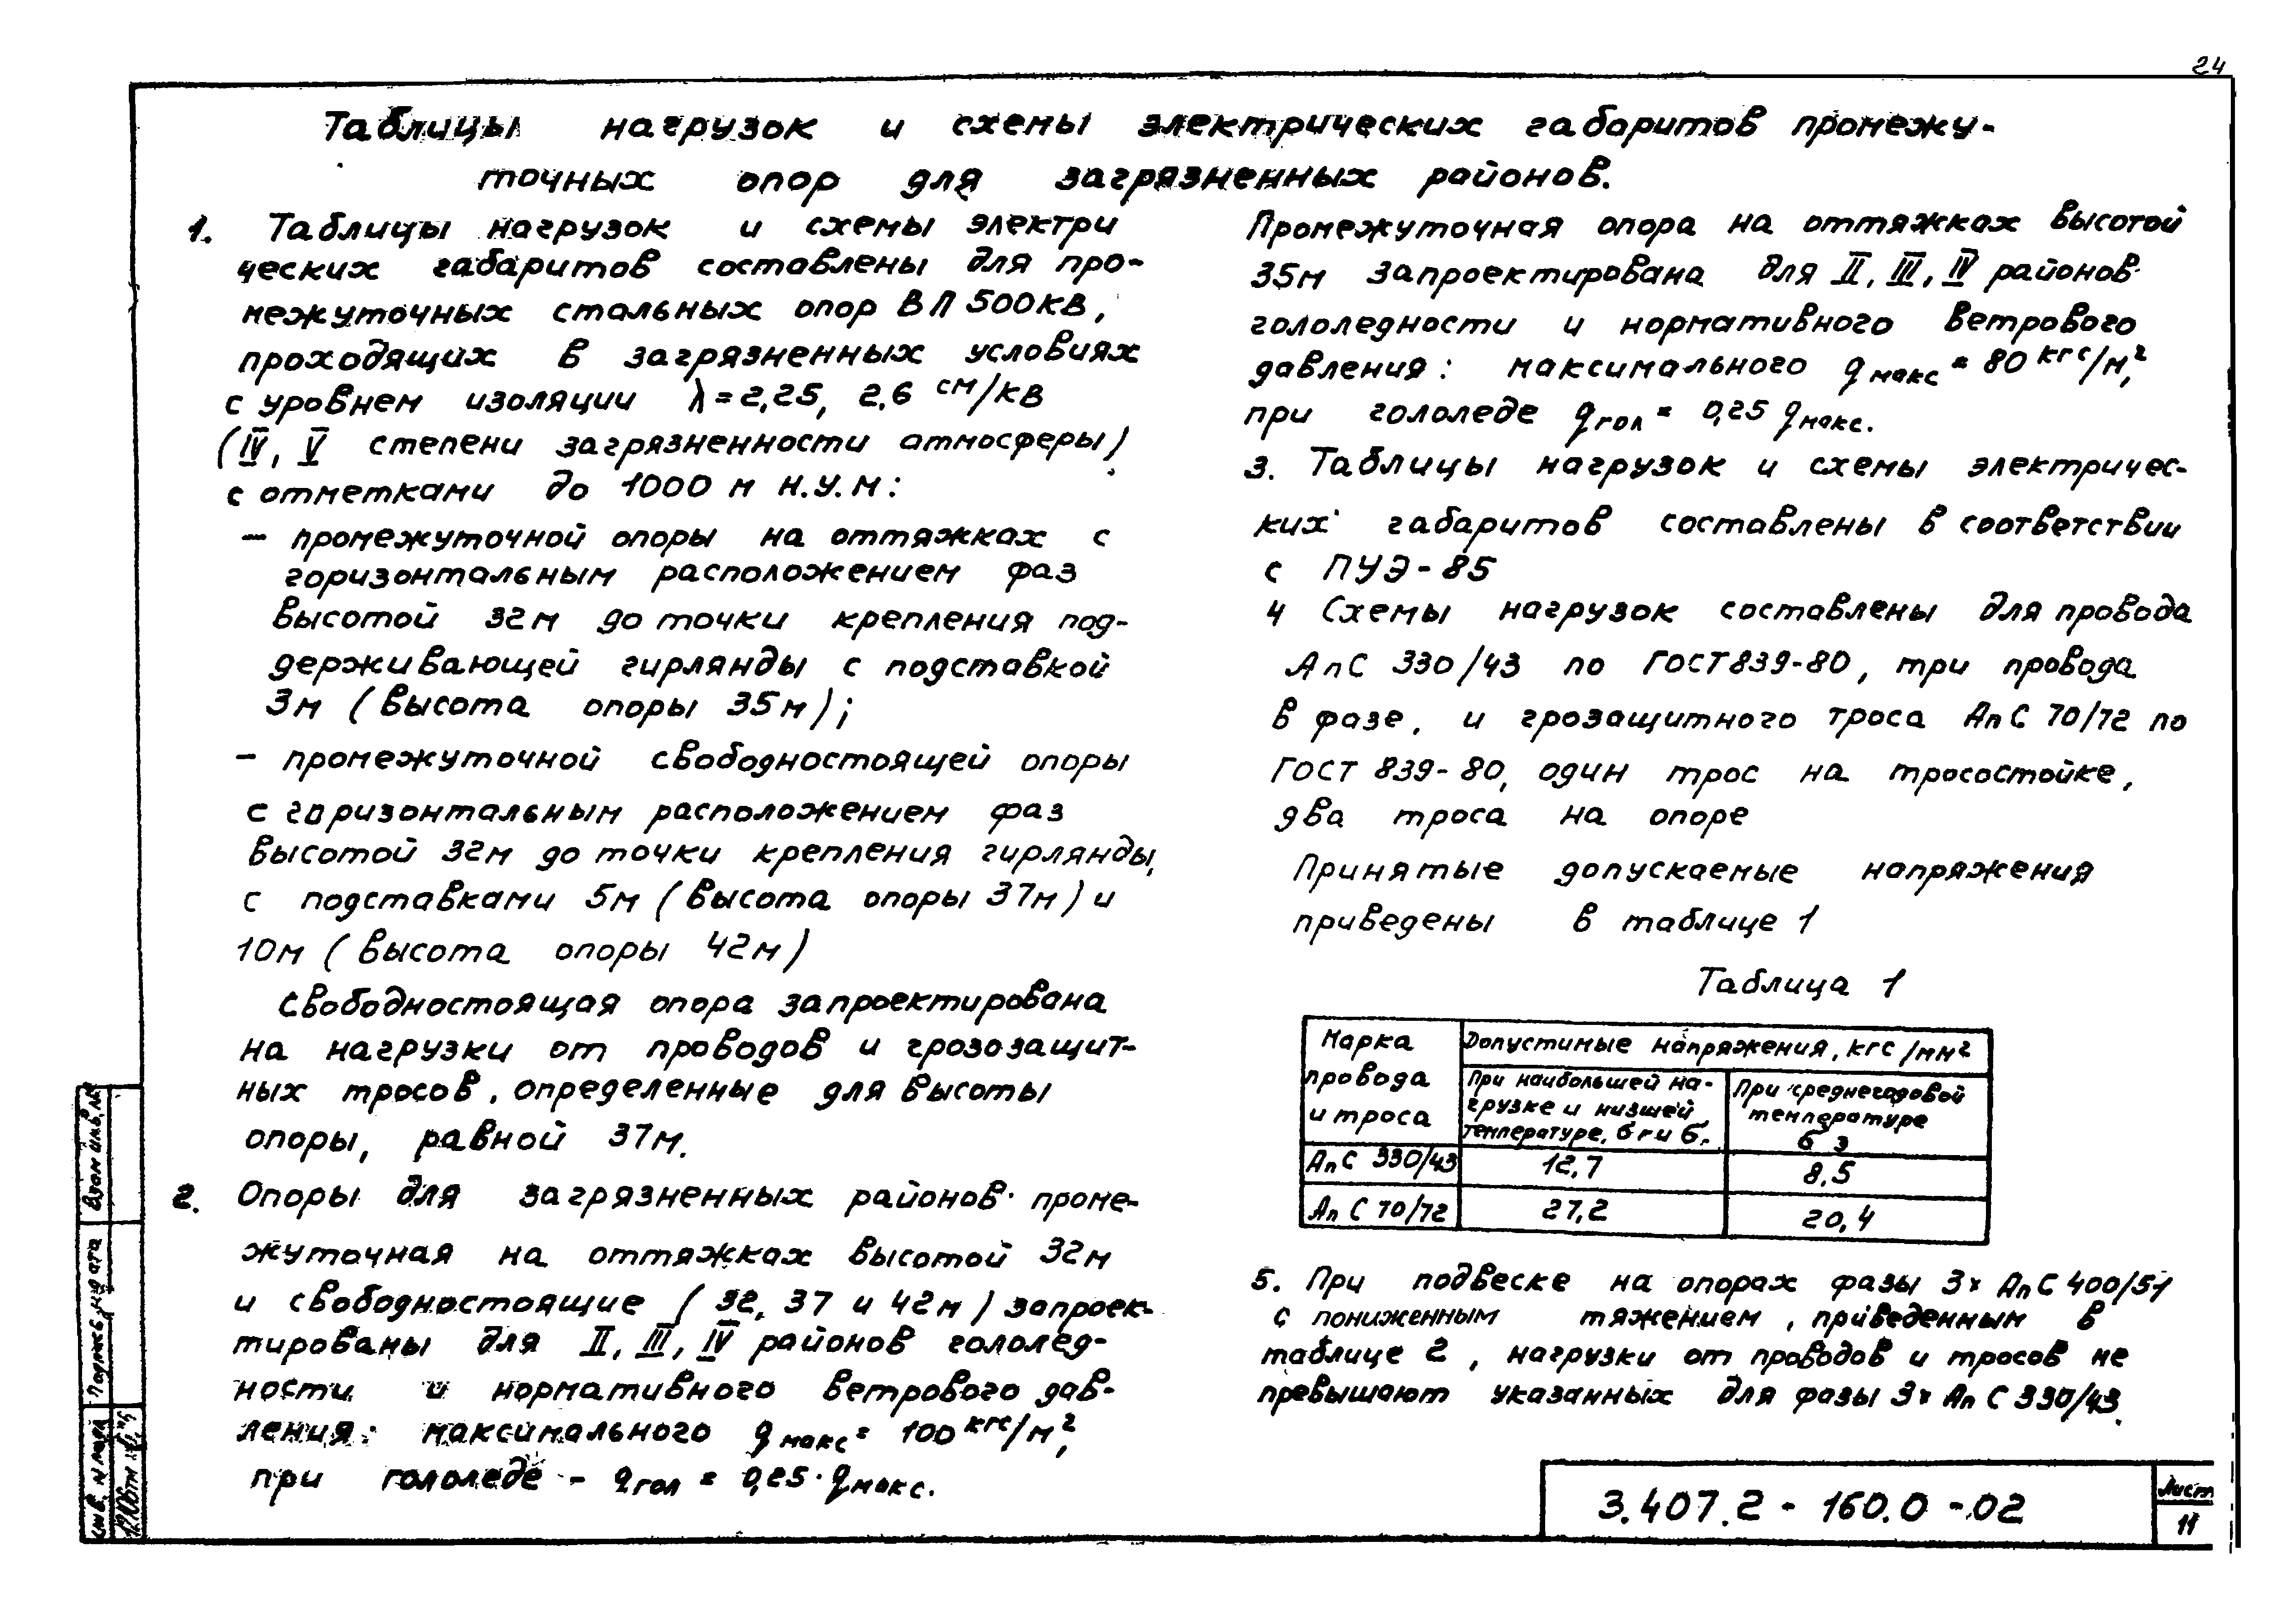 24
Таблицы нагрузок и схемы электрических габаритов промежу-
точных опор для загрязненных районов.
1. Таблицы нагрузок и схемы электри
ческих габаритов составлены для про-
межуточных стальных опор ВЛ 500кВ,
проходящих в загрязненных условиях
с уровнем изоляции λ=2,25, 2,6 см/кВ
(IV, V степени загрязненности атмосферы)
с отметками до 1000 м н.у.м:
– промежуточной опоры на оттяжках с
горизонтальным расположением фаз
высотой 32м до точки крепления под-
держивающей гирлянды с подставкой
3м (высота опоры 35м);
– промежуточной свободностоящей опоры
с горизонтальным расположением фаз
высотой 32м до точки крепления гирлянды,
с подставками 5м (высота опоры 37м) и
10м (высота опоры 42м)
Свободностоящая опора запроектирована
на нагрузки от проводов и грозозащит-
ных тросов, определенные для высоты
опоры, равной 37м.
2. Опоры для загрязненных районов· проме-
жуточная на оттяжках высотой 32м
и свободностоящие (32, 37 и 42м) запроек-
тированы для II, III, IV районов гололед-
ности и нормативного ветрового дав-
ления: максимального qмакс = 100 кгс/м²,
при гололеде - qгол = 0,25·qмакс.
Промежуточная опора на оттяжках высотой
35м запроектирована для II, III, IV районов
гололедности и нормативного ветрового
давления: максимального qмакс = 80 кгс/м²,
при гололеде qгол = 0,25 qмакс.
3. Таблицы нагрузок и схемы электричес-
ких габаритов составлены в соответствии
с ПУЭ-85
4 Схемы нагрузок составлены для провода
АпС 330/43 по ГОСТ839-80, три провода
в фазе, и грозащитного троса АпС 70/72 по
ГОСТ 839-80, один трос на тросостойке,
два троса на опоре
Принятые допускаемые напряжения
приведены в таблице 1
Таблица 1
Марка провода и троса
Допустимые напряжения, кгс/мм²
При наибольшей на-
грузке и низшей
температуре, σг и σ-
При среднегодовой
температуре
σ э
АпС 330/43 12,7 8,5
АпС 70/72 27,2 20,4
5. При подвеске на опорах фазы 3х АпС 400/51
с пониженным тяжением, приведенным в
таблице 2, нагрузки от проводов и тросов не
превышают указанных для фазы 3х АпС 330/43.
3.407.2 - 160.0 - 02
Лист
11
Взам инв. №
Подпись и дата
Инв. N подл